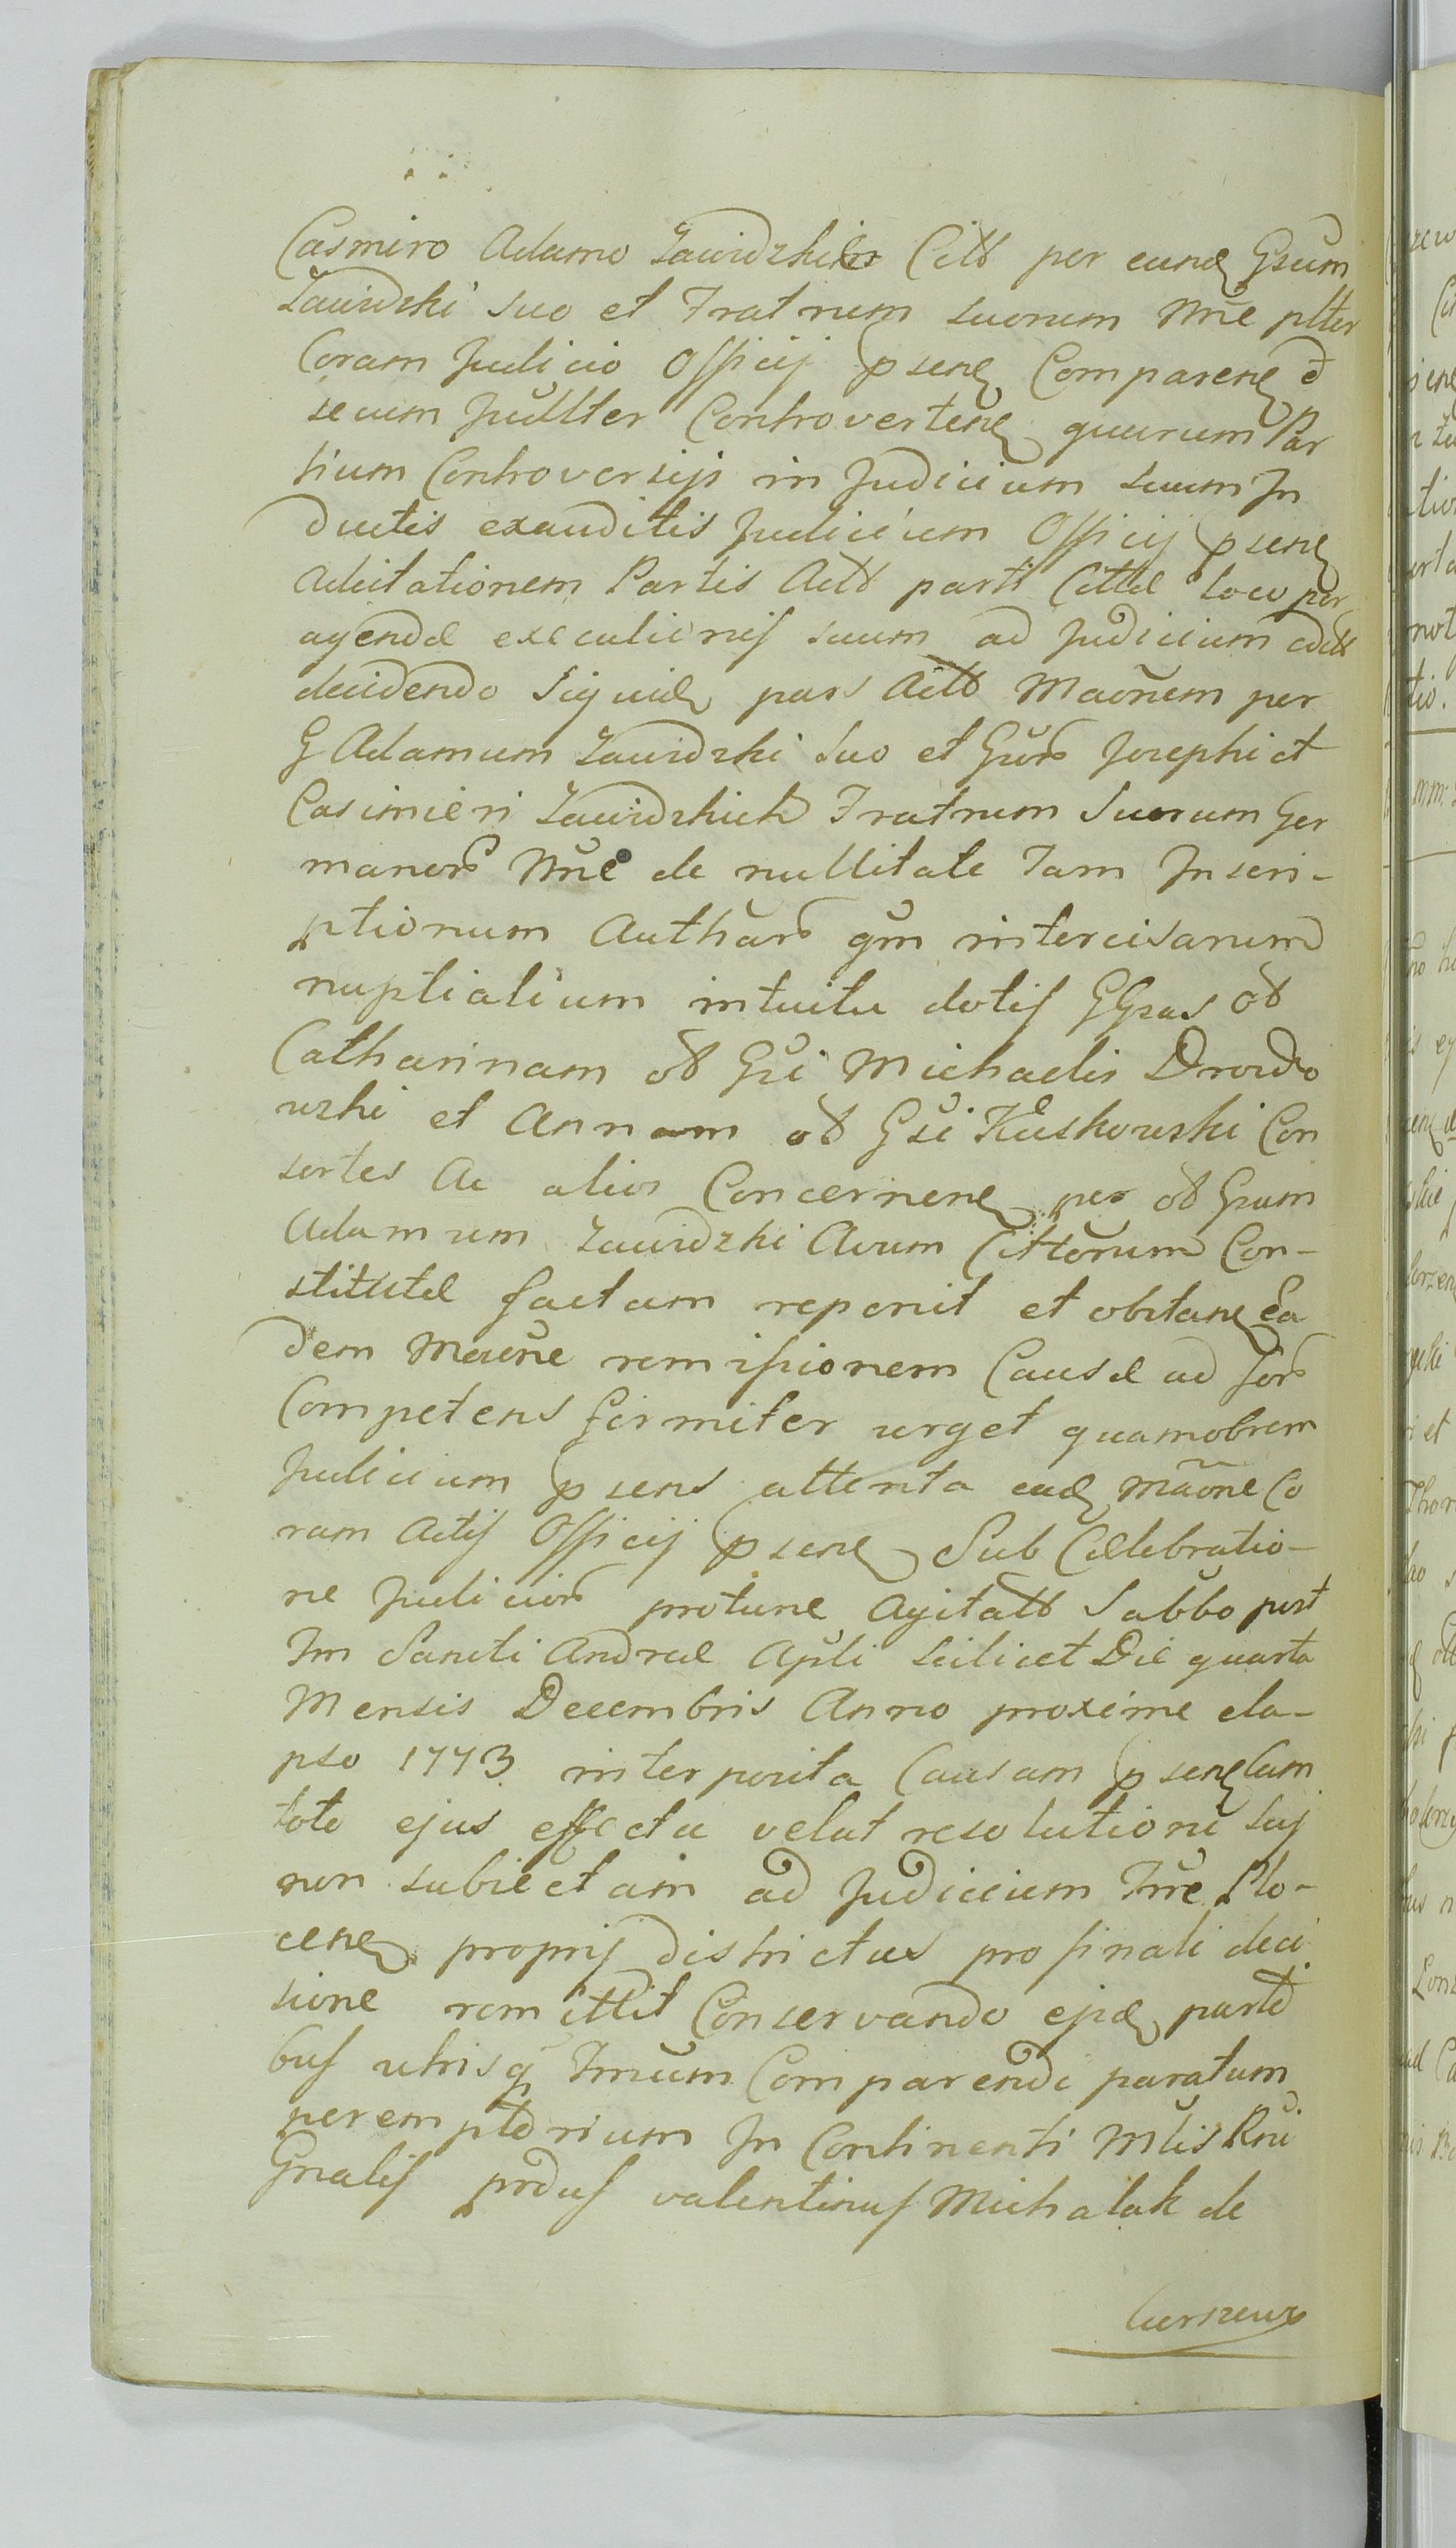 Casmiro Adamo Zawidzkich Citt per eund Gsum
Zawidzki suo et Fratrum suorum Nne pltter
Coram Judicio Officij psen Comparen et
secum Jultter Controverten quarum Par
tium Controversijs in Judicium suum In
ductis exauditis Judicium Officij psen
Adcitationem Partis Act parti Cittæ loco per
agendæ executionis suum ad Judicium
decidendo siquid pars Act Maonem per
G Adamum Zawidzki suo et Gsor Josephi et
Casimiri Zawidzkich Fratrum Suorum Ger
manor Nne de nullitate Tam Inscri-
ptionum Authar qm intercisarum
nuptialium intuitu dotis GGsas od
Catharinam od Gsi Michaelis Drozdo
wski et Annam od Gsi Kuskowski Con
sortes Ac alios Concernen per od Gsum
Adamum Zawidzki Avum Cittorum Con-
stitutæ factam reponit et obstan Ea
dem Maone remissionem Causæ ad for
Competens firmiter urget quamobrem
Judicium psens attenta ead Maone Co
ram Actis Officij psen Sub Cælebratio-
ne Judicior protunc Agitatt Sabbo post
Fm Sancti Andreæ Apli scilicet Die quarta
Mensis Decembris Anno proxime ela-
pso 1773 interposita Causam psen Cum
toto ejus effectu velut resolutioni suj
non subiectam ad Judicium Trre Plo-
cen proprij districtus pro finali deci
sione remittit Conservando ejsd parti
bus utrisq Trnum Comparendi paratum
peremptorium In Continenti Mtlis Rni
Gnalis prdus valentinus Michalak de
Curszewo